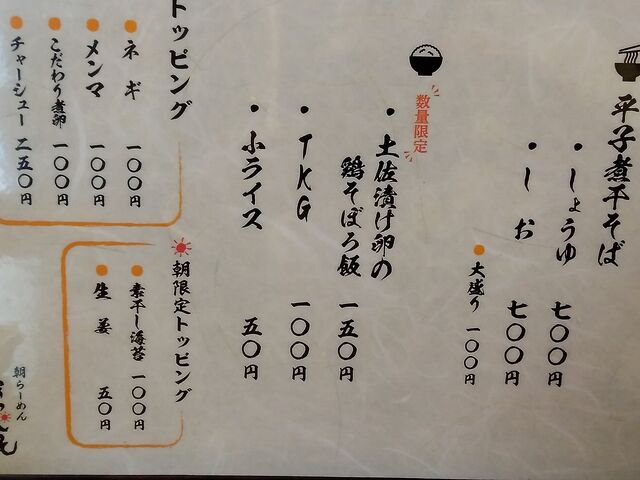 平子煮干そば
・しょうゆ 七〇〇円
・しお 七〇〇円
大盛り 一〇〇円
数量限定
・土佐漬け卵の
鶏そぼろ飯 一五〇円
・TKG 一〇〇円
・小ライス 五〇円
トッピング
ネギ 一〇〇円
メンマ 一〇〇円
こだわり煮卵 一〇〇円
チャーシュー 二五〇円
朝限定トッピング
素干し海苔 一〇〇円
生姜 五〇円
朝らーめん